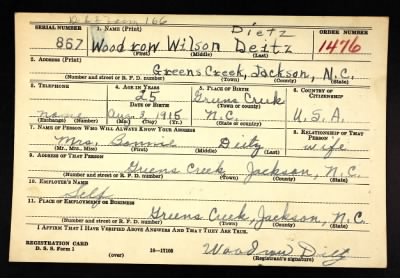 D.S.S. Form 166
Dietz
SERIAL NUMBER 1. NAME (Print) ORDER NUMBER
867 Woodrow Wilson Deitz 1476
(First) (Middle) (Last)
2. ADDRESS (Print)
Greens Creek, Jackson, N.C.
(Number and street or R. F. D. number) (Town) (County) (State)
3. TELEPHONE 4. AGE IN YEARS 5. PLACE OF BIRTH 6. COUNTRY OF CITIZENSHIP
25 Greens Creek
DATE OF BIRTH (Town or county)
none Aug 8 1915 N.C. U.S.A.
(Exchange) (Number) (Mo.) (Day) (Yr.) (State or country)
7. NAME OF PERSON WHO WILL ALWAYS KNOW YOUR ADDRESS 8. RELATIONSHIP OF THAT PERSON
Mrs. Bonnie Dietz wife
(Mr., Mrs., Miss) (First) (Middle) (Last)
9. ADDRESS OF THAT PERSON
Greens Creek Jackson, N.C.
(Number and street or R. F. D. number) (Town) (County) (State)
10. EMPLOYER'S NAME
Self
11. PLACE OF EMPLOYMENT OR BUSINESS
Greens Creek, Jackson, N.C.
(Number and street or R. F. D. number) (Town) (County) (State)
I AFFIRM THAT I HAVE VERIFIED ABOVE ANSWERS AND THAT THEY ARE TRUE.
REGISTRATION CARD
D. S. S. Form 1 (over) 16—17105 Woodrow Dietz
(Registrant's signature)